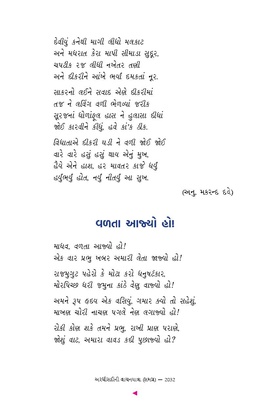 દેવીયું કનેથી માગી લીધો મલકાટ
અને મધરાત કેરા માપી સીમાડા સુદૂર,
ચપટીક રજ લીધી નખેતર તણી
અને દીકરીને આંખે ભર્યાં દમકતાં નૂર.
સાકરનો લઈને સવાદ એણે દીકરીમાં
તજ ને લવિંગ વળી ભેળવ્યાં જરીક
સૂરજનાં ધોળાંફૂલ હાસ ને હુલાસા દીધાં
જોઈ કારવીને કીધું, હવે કાં'ક ઠીક.
વિધાતાએ દીકરી ઘડી ને વળી જોઈ જોઈ
વારે વારે હસું હસું થાય એનું મુખ,
હૈયે એને હાથ, હર માવતર કાજે ધર્યું
હર્યુંભર્યું હેત, નર્યું નીતર્યું આ સુખ.
(અનુ. મકરન્દ દવે)
વળતા આજ્યો હો!
માધવ, વળતા આજ્યો હો!
એક વાર પ્રભુ ખબર અમારી લેતા જાજ્યો હો!
રાજમુગુટ પહેરો કે મોટા કરો ધનુષટંકાર,
મોરપિચ્છ ધરી જમુના કાંઠે વેણુ વાજ્યો હો!
અમને રૂપ હૃદય એક વસિયું, ગમાર કહો તો સહેશું,
માખણ ચોરી નાચણ પગલે નેણ લગાજ્યો હો!
રોકી કોણ શકે તમને પ્રભુ, રાખી પ્રાણ પરાણે,
જોશું વાટ, અમારા વાવડ કદી પુછાજ્યો હો?
2032